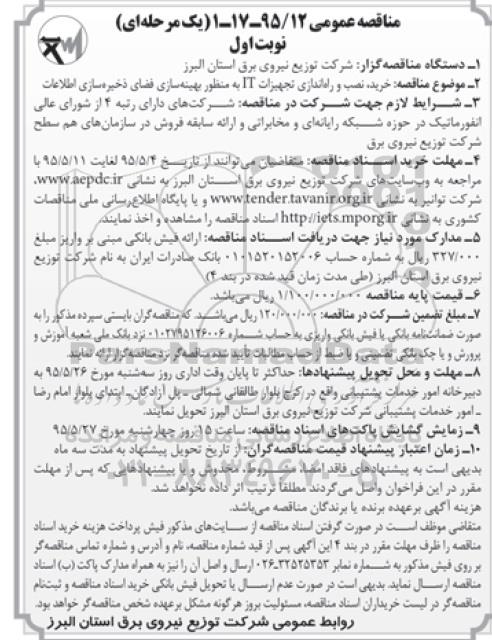 مناقصه عمومی ۹۵/۱۲-۱۷-۱ (یک مرحله‌ای)
نوبت اول
۱- دستگاه مناقصه‌گزار: شرکت توزیع نیروی برق استان البرز
۲- موضوع مناقصه: خرید، نصب و راه‌اندازی تجهیزات IT به منظور بهینه‌سازی فضای ذخیره‌سازی اطلاعات
۳- شرایط لازم جهت شرکت در مناقصه: شرکت‌های دارای رتبه ۴ از شورای عالی
انفورماتیک در حوزه شبکه رایانه‌ای و مخابراتی و ارائه سابقه فروش در سازمان‌های هم سطح
شرکت توزیع نیروی برق
۴- مهلت خرید اسناد مناقصه: متقاضیان می‌توانند از تاریخ ۹۵/۵/۴ لغایت ۹۵/۵/۱۱ با
مراجعه به وب‌سایت‌های شرکت توزیع نیروی برق استان البرز به نشانی www.aepdc.ir،
شرکت توانیر به نشانی www.tender.tavanir.org.ir و یا پایگاه اطلاع‌رسانی ملی مناقصات
کشوری به نشانی http://iets.mporg.ir اسناد مناقصه را مشاهده و اخذ نمایند.
۵- مدارک مورد نیاز جهت دریافت اسناد مناقصه: ارائه فیش بانکی مبنی بر واریز مبلغ
۳۲۷/۰۰۰ ریال به شماره حساب ۰۱۰۱۵۲۰۱۵۲۰۰۶ بانک صادرات ایران به نام شرکت توزیع
نیروی برق استان البرز (طی مدت زمان قید شده در بند ۴)
۶- قیمت پایه مناقصه ۱/۱۰۰/۰۰۰/۰۰۰ ریال می‌باشد.
۷- مبلغ تضمین شرکت در مناقصه: ۱۲۰/۰۰۰/۰۰۰ ریال می‌باشد که مناقصه‌گران بایستی سپرده مذکور را به
صورت ضمانتنامه بانکی یا فیش بانکی واریزی به حساب شماره ۰۱۰۲۷۹۵۱۲۶۰۰۶ نزد بانک ملی شعبه آموزش و
پرورش و یا چک بانکی تضمینی و یا ضبط از حساب مطالبات تایید شده مناقصه‌گر نزد مناقصه‌گزار ارائه نمایند.
۸- مهلت و محل تحویل پیشنهادها: حداکثر تا پایان وقت اداری روز سه‌شنبه مورخ ۹۵/۵/۲۶ به
دبیرخانه امور خدمات پشتیبانی واقع در کرج بلوار طالقانی شمالی- پل آزادگان- ابتدای بلوار امام رضا
- امور خدمات پشتیبانی شرکت توزیع نیروی برق استان البرز تحویل نمایند.
۹- زمایش گشایش پاکت‌های اسناد مناقصه: ساعت ۱۵ روز چهارشنبه مورخ ۹۵/۵/۲۷
۱۰- زمان اعتبار پیشنهاد قیمت مناقصه‌گران: از تاریخ تحویل پیشنهاد به مدت سه ماه
بدیهی است به پیشنهادهای فاقد امضا، مشروط، مخدوش و یا پیشنهادهایی که پس از مهلت
مقرر در این فراخوان واصل می‌گردند مطلقا ترتیب اثر داده نخواهد شد.
هزینه آگهی برعهده برنده یا برندگان مناقصه می‌باشد.
متقاضی موظف است در صورت گرفتن اسناد مناقصه از سایت‌های مذکور فیش پرداخت هزینه خرید اسناد
مناقصه را ظرف مهلت مقرر در بند ۴ این آگهی پس از قید شماره مناقصه، نام و آدرس و شماره تماس مناقصه‌گر
بر روی فیش مذکور به شماره نمابر ۳۲۵۲۵۳۵۳-۰۲۶ ارسال و اصل آن را نیز به همراه مدارک پاکت (ب) اسناد
مناقصه ارسال نماید. بدیهی است در صورت عدم ارسال یا تحویل فیش بانکی خرید اسناد مناقصه و ثبت‌نام
مناقصه‌گر در لیست خریداران اسناد مناقصه، مسئولیت بروز هرگونه مشکل برعهده شخص مناقصه‌گر خواهد بود.
روابط عمومی شرکت توزیع نیروی برق استان البرز